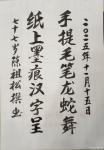 二〇二五年十一月十五日
手提毛笔龙蛇舞
纸上墨痕汉字呈
七十七岁陈祖松撰画